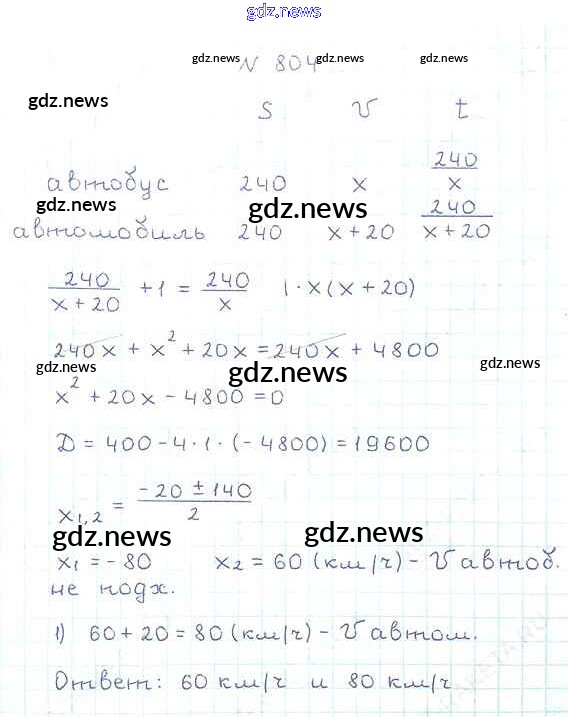 gdz.news
№ 804
gdz.news gdz.news gdz.news
gdz.news
S V t
автобус 240 x 240/x
gdz.news gdz.news
автомобиль 240 x+20 240/(x+20)
240/(x+20) +1 = 240/x |·x(x+20)
240x + x² + 20x = 240x + 4800
gdz.news gdz.news gdz.news
x² + 20x - 4800 = 0
D = 400 - 4·1·(-4800) = 19600
x1,2 = (-20 ± 140)/2
gdz.news gdz.news
x1 = -80 x2 = 60 (км/ч) - V автоб.
не подх.
1) 60 + 20 = 80 (км/ч) - V автом.
Ответ: 60 км/ч и 80 км/ч